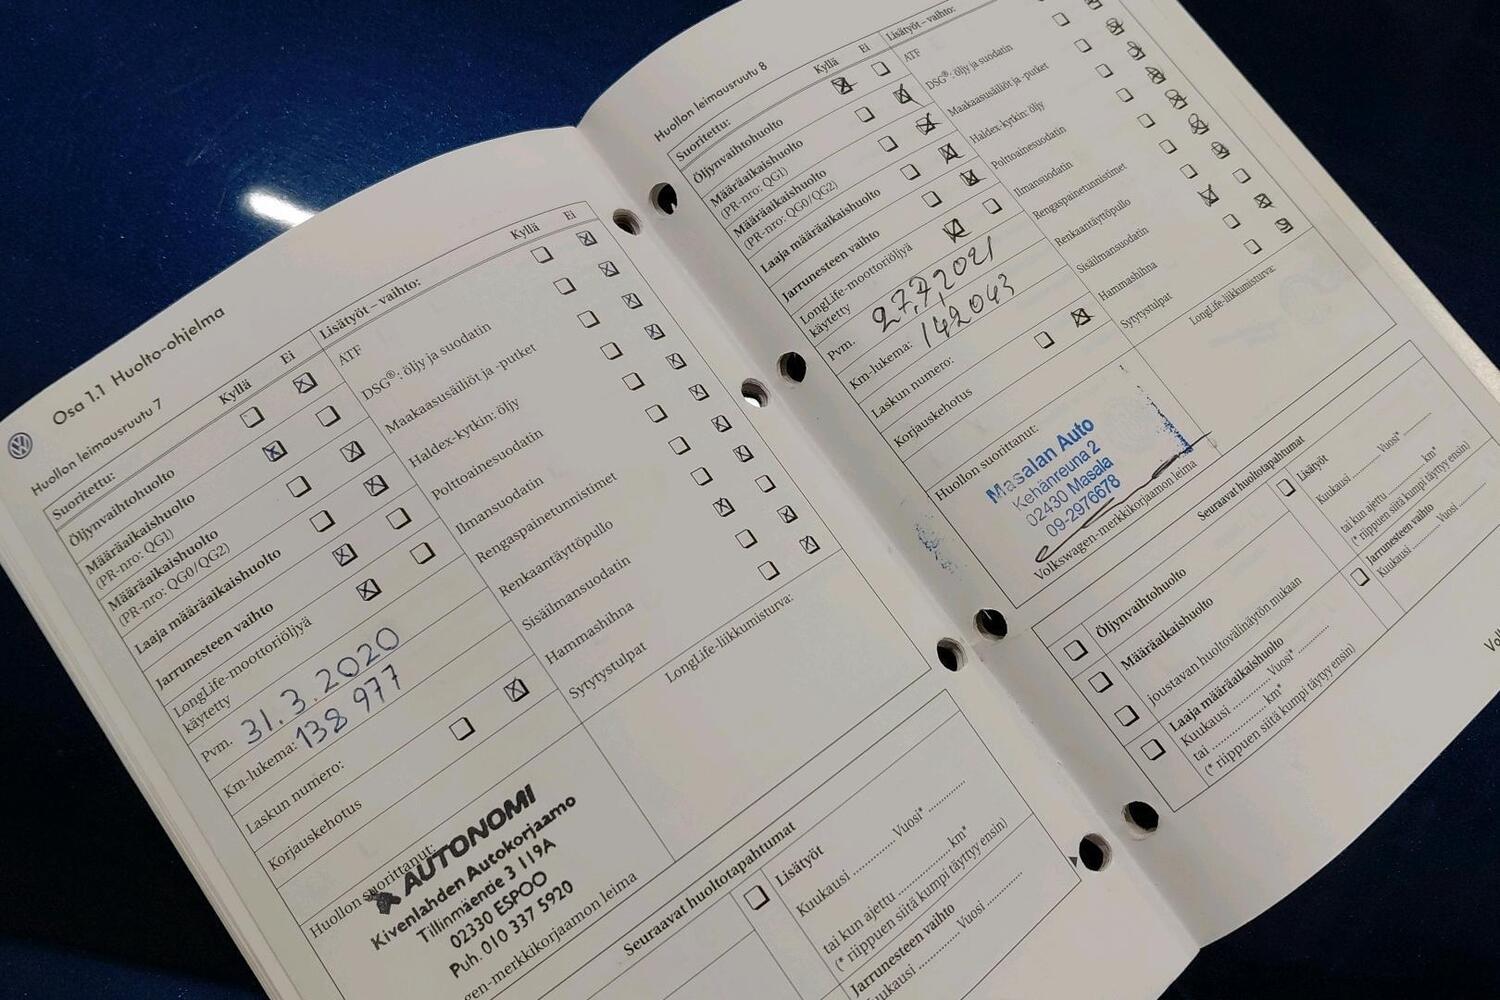 Osa 1.1 Huolto-ohjelma
Huollon leimausruutu 7
Suoritettu:
Kyllä
Ei
Lisätyöt – vaihto:
Kyllä
Ei
Öljynvaihtohuolto
Määräaikaishuolto
(PR-nro: QG1)
Määräaikaishuolto
(PR-nro: QG0/QG2)
Laaja määräaikaishuolto
Jarrunesteen vaihto
LongLife-moottoriöljyä
käytetty
Pvm. 31.3.2020
Km-lukema: 138 977
Laskun numero:
Korjauskehotus
Huollon suorittanut:
AUTONOMI
Kivenlahden Autokorjaamo
Tillinmäentie 3 I 19A
02330 ESPOO
Puh. 010 337 5920
gen-merkkikorjaamon leima
ATF
DSG®: öljy ja suodatin
Maakaasusäiliöt ja -putket
Haldex-kytkin: öljy
Polttoainesuodatin
Ilmansuodatin
Rengaspainetunnistimet
Renkaantäyttöpullo
Sisäilmansuodatin
Hammashihna
Sytytystulpat
LongLife-liikkumisturva:
Seuraavat huoltotapahtumat
Lisätyöt
Kuukausi .............. Vuosi* ..............
tai kun ajettu .............. km*
(* riippuen siitä kumpi täytyy ensin)
Jarrunesteen vaihto
Kuukausi .............. Vuosi ..............
Huollon leimausruutu 8
Suoritettu:
Kyllä
Ei
Lisätyöt – vaihto:
Öljynvaihtohuolto
Määräaikaishuolto
(PR-nro: QG1)
Määräaikaishuolto
(PR-nro: QG0/QG2)
Laaja määräaikaishuolto
Jarrunesteen vaihto
LongLife-moottoriöljyä
käytetty
Pvm. 27.7.2021
Km-lukema: 142043
Laskun numero:
Korjauskehotus
Huollon suorittanut:
Masalan Auto
Kehänreuna 2
02430 Masala
09-2976678
Volkswagen-merkkikorjaamon leima
ATF
DSG®: öljy ja suodatin
Maakaasusäiliöt ja -putket
Haldex-kytkin: öljy
Polttoainesuodatin
Ilmansuodatin
Rengaspainetunnistimet
Renkaantäyttöpullo
Sisäilmansuodatin
Hammashihna
Sytytystulpat
LongLife-liikkumisturva:
Seuraavat huoltotapahtumat
Öljynvaihtohuolto
Määräaikaishuolto
joustavan huoltovälinäytön mukaan
Laaja määräaikaishuolto
Kuukausi .............. Vuosi* ..............
tai .............. km*
(* riippuen siitä kumpi täytyy ensin)
Lisätyöt
Kuukausi .............. Vuosi* ..............
tai kun ajettu .............. km*
(* riippuen siitä kumpi täyttyy ensin)
Jarrunesteen vaihto
Kuukausi .............. Vuosi ..............